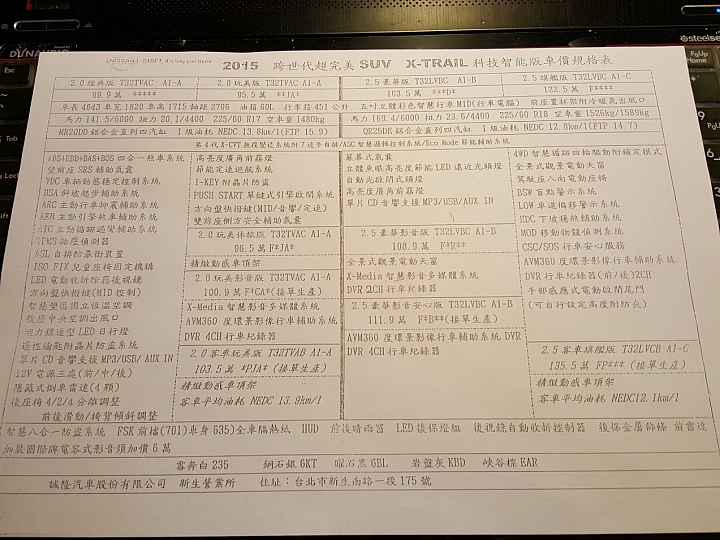 DYNAUDIO
steelse
Esc
PgUp
Home
PgUp
PgDn
Shift
NISSAN
2015 跨世代超完美 SUV X-TRAIL 科技智能版車價規格表
2.0 經典版 T32TVAC A1-A
2.0 玩美版 T32TVAC A1-A
2.5 豪華版 T32LVBC A1-B
2.5 旗艦版 T32LVBC A1-C
89.9 萬 *****
95.5 萬 **JA*
103.5 萬 **D**
122.5 萬 F****
車長 4643 車寬 1820 車高 1715 軸距 2706 油箱 60L 行李箱 451 公升 五吋立體彩色智慧行車 MID(行車電腦) 前座置杯架附冷暖氣出風口
馬力 141.5/6000 扭力 20.1/4400 225/60 R17 空車重 1480kg
馬力 169.4/6000 扭力 23.4/4400 225/60 R18 空車重 1526kg/1580kg
MR20DD 鋁合金直列四汽缸 1 級油耗 NEDC 13.8km/l(FTP 15.9)
QR25DE 鋁合金直列四汽缸 1 級油耗 NEDC 12.8km/l(FTP 14.7)
第 4 代 X-CVT 無段變速系統附 7 速手自排/ASC 智慧循跡控制系統/Eco Mode 節能輔助系統
ABS+EBD+BAS+BOS 四合一煞車系統
雙前座 SRS 輔助氣囊
VDC 車輛動態穩定控制系統
HSA 斜坡起步輔助系統
ARC 主動行車抑震輔助系統
AEB 主動引擎煞車輔助系統
ATC 主動循跡過彎輔助系統
TPMS 胎壓偵測器
ASL 自排防暴衝裝置
ISO FIX 兒童座椅固定機構
LED 電動收折除霧後視鏡
方向盤快捷鍵(MID 控制)
智慧雙區獨立恆溫空調
後座中央空調出風口
迴力鏢造型 LED 日行燈
遙控鑰匙附晶片防盜系統
單片 CD 音響支援 MP3/USB/ AUX IN
12V 電源三處(前/中/後)
隱藏式倒車雷達(4 顆)
後座椅 4/2/4 分離調整
前後滑動/椅背傾斜調整
高亮度廣角前霧燈
節能定速巡航系統
I-KEY 附晶片防盜
PUSH START 單鍵式引擎啟閉系統
方向盤快捷鍵(MID/音響/定速)
雙前座側方安全輔助氣囊
2.0 玩美休旅版 T32TVAC A1-A
96.5 萬 F*JA*
精緻動感車頂架
2.0 玩美影音版 T32TVAC A1-A
100.9 萬 F*CA*(接單生產)
X-Media 智慧影音多媒體系統
AVM360 度環景影像行車輔助系統
DVR 4CH 行車紀錄器
2.0 客車玩美版 T32TVAB A1-A
103.5 萬 *PJA* (接單生產)
精緻動感車頂架
客車平均油耗 NEDC 13.9km/l
簾幕式氣囊
立體魚眼高亮度節能 LED 遠近光頭燈
自動光啟閉式頭燈
高亮度廣角前霧燈
單片 CD 音響支援 MP3/USB/AUX IN
2.5 豪華影音版 T32LVBC A1-B
108.9 萬 F*R**
全景式觀景電動天窗
X-Media 智慧影音多媒體系統
DVR 2CH 行車紀錄器
2.5 豪華影音安心版 T32LVBC A1-B
111.9 萬 F*B**(接單生產)
AVM360 度環景影像行車輔助系統 DVR
DVR 4CH 行車紀錄器
4WD 智慧循跡四輪驅動附鎖定模式
全景式觀景電動天窗
駕駛座八向電動座椅
BSW 盲點警示系統
LDW 車道偏移警示系統
HDC 下坡穩煞輔助系統
MOD 移動物體偵測系統
CSC/SOS 行車安心服務
AVM360 度環景影像行車輔助系統
DVR 行車紀錄器(前/後)2CH
手部感應式電動啟閉尾門
(可自行設定高度附防夾)
2.5 客車旗艦版 T32LVCB A1-C
135.5 萬 FP*** (接單生產)
精緻動感車頂架
客車平均油耗 NEDC12.1km/l
智慧八合一防盜系統 FSK 前檔(701)車身 635)全車隔熱紙 HUD 前後晴雨窗 LED 後保燈組 後視鏡自動收折控制器 後保金屬飾條 前雷達
加裝國際牌電容式影音須加價 6 萬
雪奔白 235 鋼石銀 6KT 曜石黑 GBL 岩盤灰 KBD 峽谷棕 EAR
誠隆汽車股份有限公司 新生營業所 住址：台北市新生南路一段 175 號